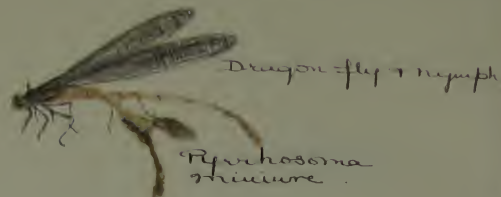 Dragon-fly & nymph
Pyrrhosoma
minium.